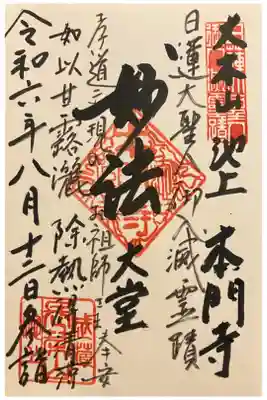 大本山 池上 本門寺
日蓮大聖人御入滅霊蹟
妙法
大堂
孝道 現のお祖師
如以甘露灑 除熱得清涼
令和六年八月十二日参詣